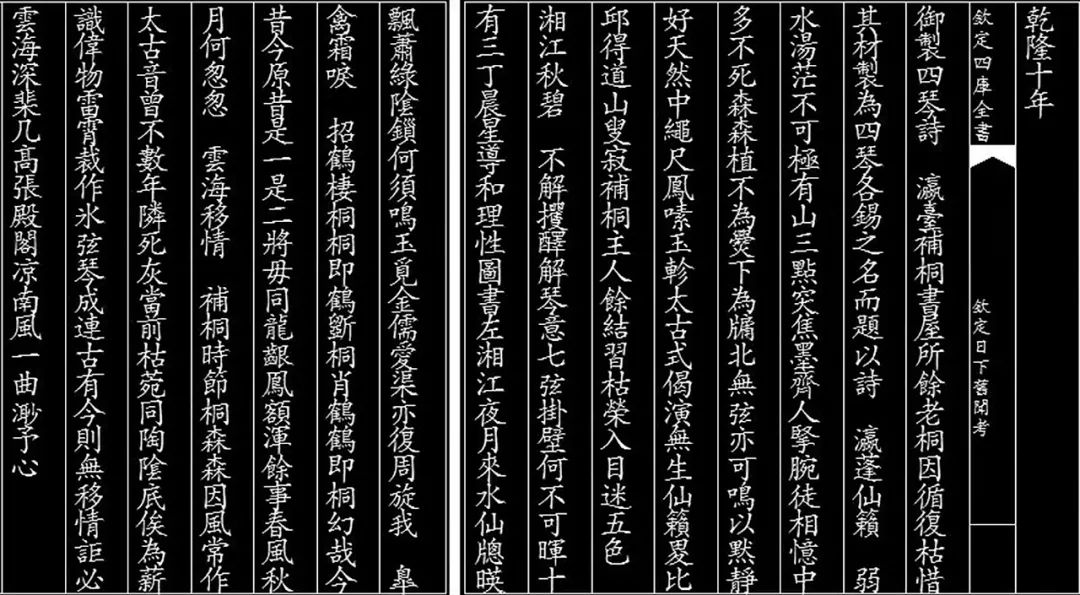 乾隆十年
欽定四庫全書
欽定日下舊聞考
御製四琴詩　瀛臺補桐書屋所餘老桐因循復枯惜
其材製為四琴各錫之名而題以詩　瀛蓬仙籟　弱
水湯茫不可極有山三點突焦墨齊人掔腕徒相憶中
多不死森森植不為爨下為牖北無弦亦可鳴以默靜
好天然中繩尺鳳嗉玉軫太古式偈演無生仙籟畧比
邱得道山叟寂補桐主人餘結習枯榮入目迷五色
湘江秋碧　不解攫醳解琴意七弦掛壁何不可暉十
有三丁晨星導和理性圖書左湘江夜月來水仙牕暎
飄蕭綠陰鎖何須鳴玉覓金儒愛渠亦復周旋我　皐
禽霜唳　招鶴棲桐桐即鶴斵桐肖鶴鶴即桐幻哉今
昔今原昔是一是二將毋同龍齦鳳額渾餘事春風秋
月何怱怱　雲海移情　補桐時節桐森森因風常作
太古音曾不數年隣死灰當前枯菀同陶陰底俟為薪
識偉物雷霄裁作氷弦琴成連古有今則無移情詎必
雲海深棐几髙張殿閣凉南風一曲渺予心